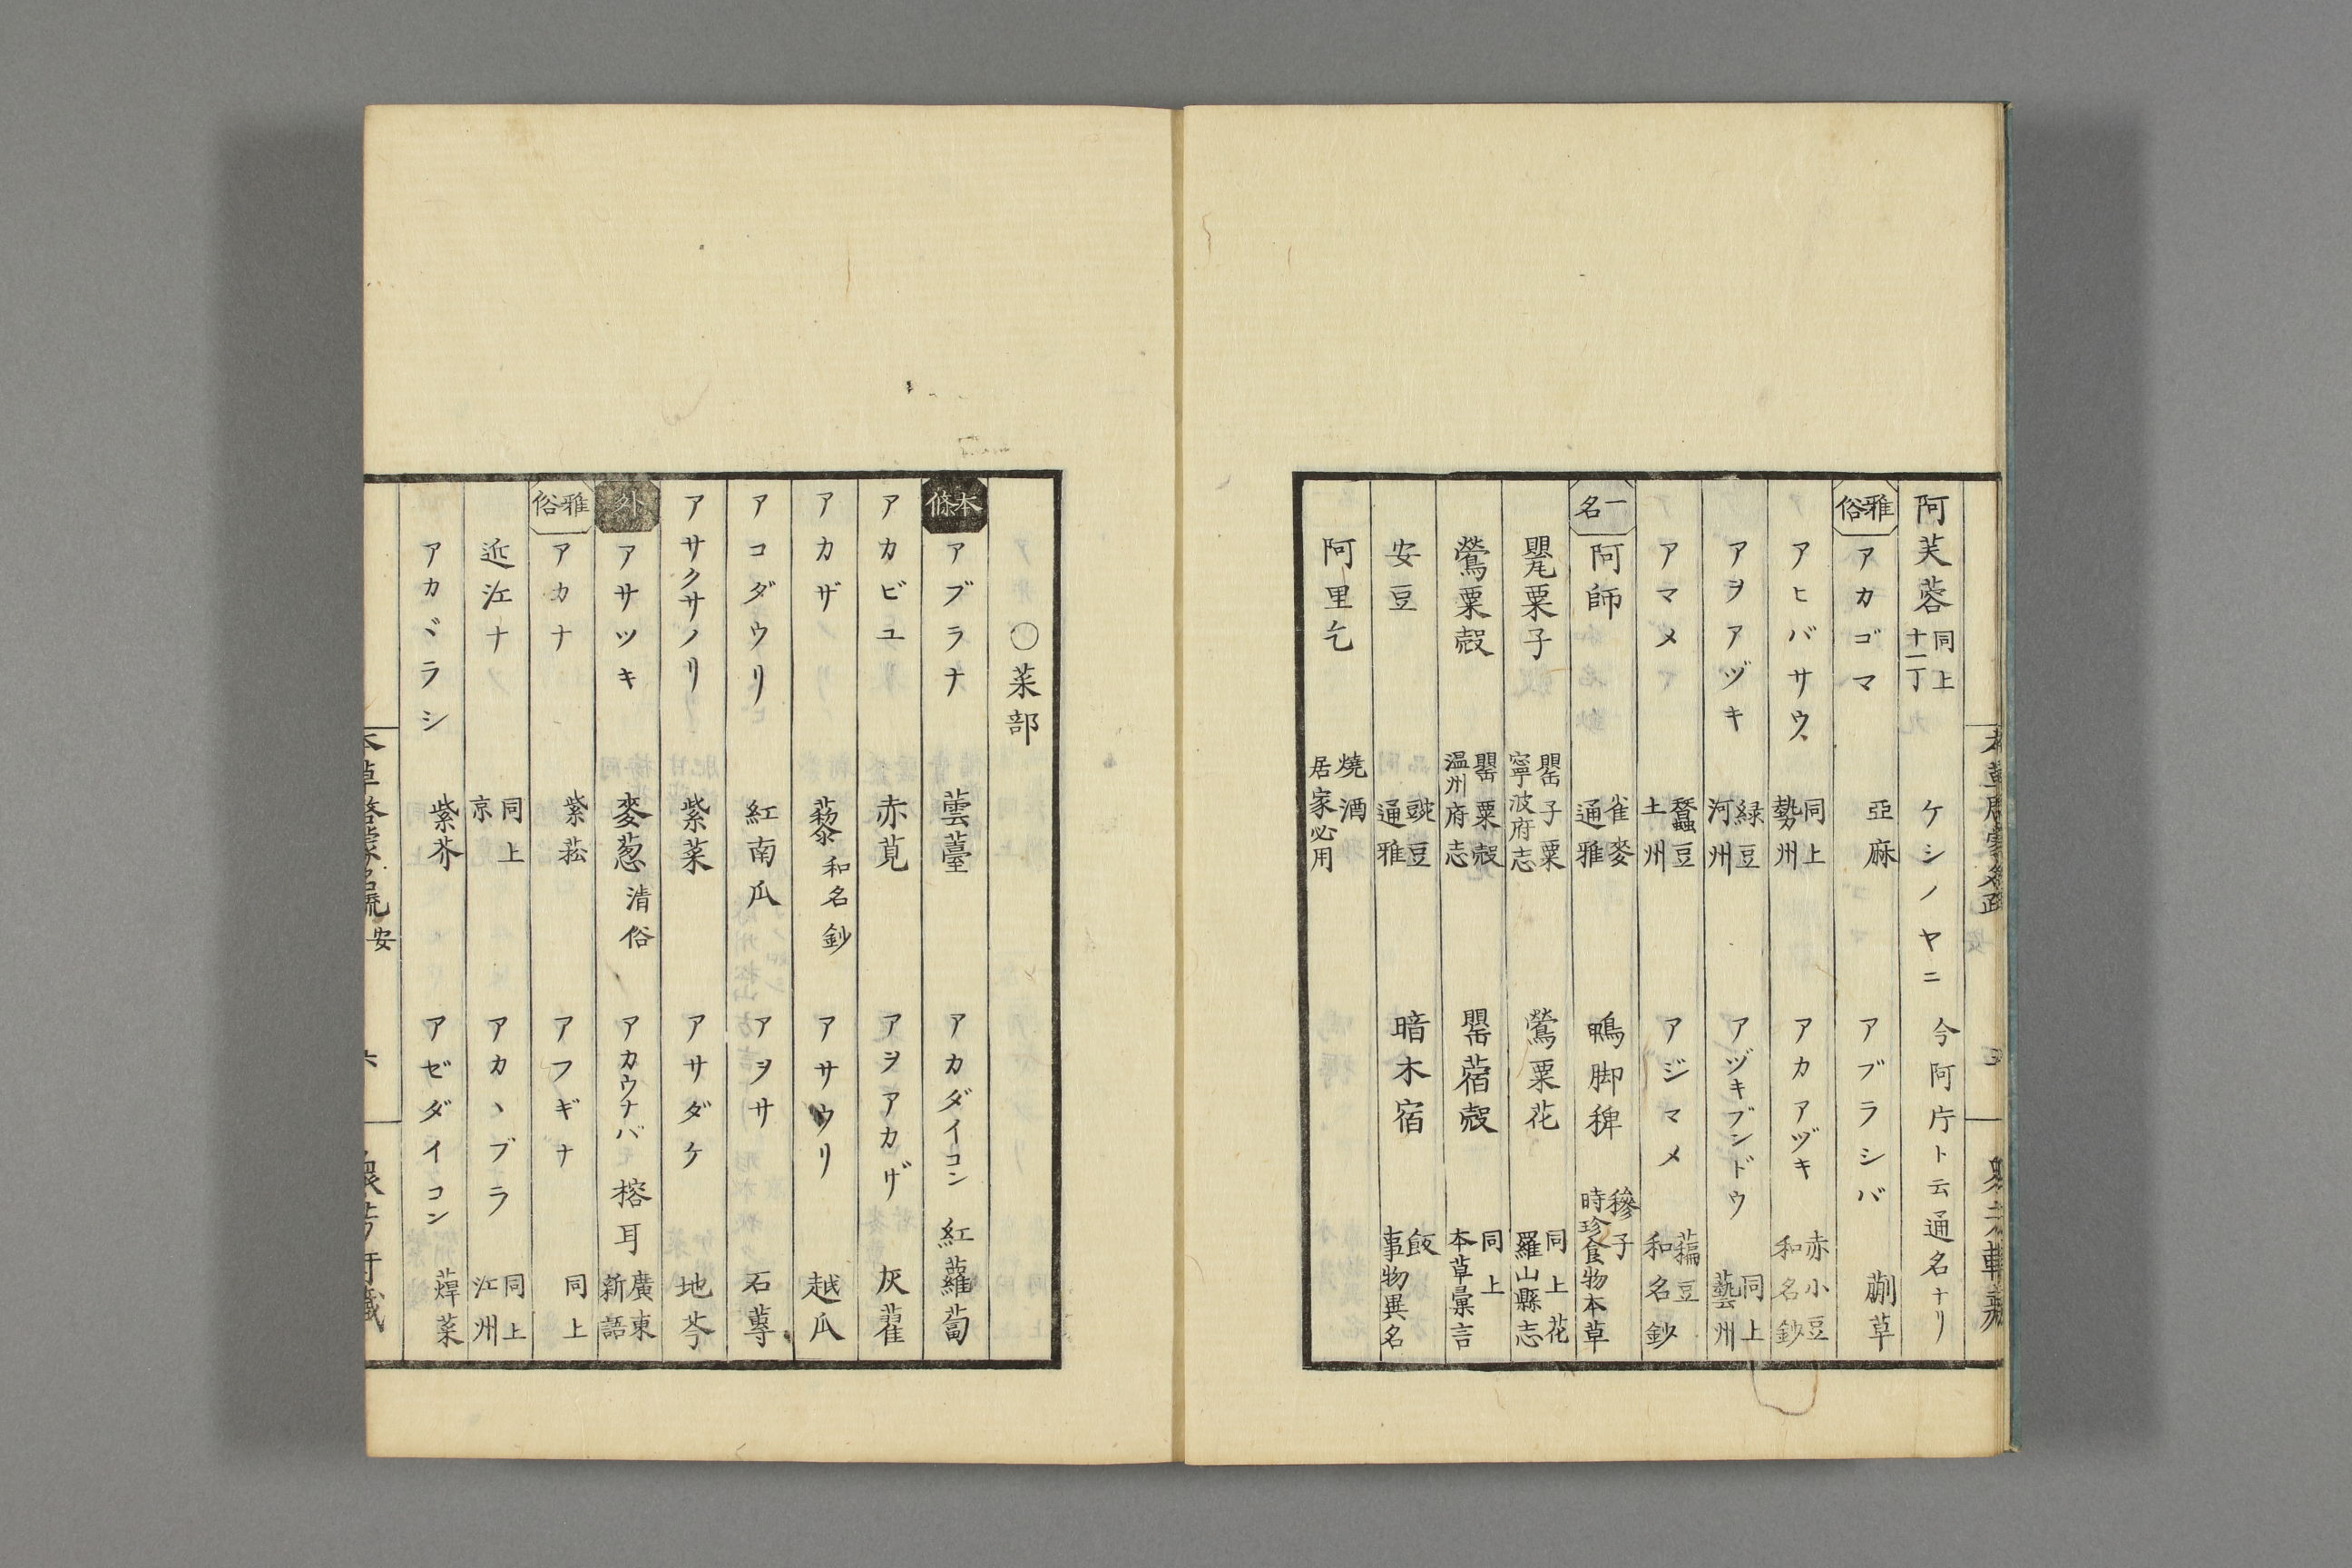 阿芙蓉 同上 十一丁 ケシノヤニ 今阿片ト云通名ナリ
雅俗 アカゴマ 亞麻 アブラシバ 蒯草
アヒバサウ 同上 勢州 アカアヅキ 赤小豆 和名鈔
アヲアヅキ 緑豆 河州 アヅキブンドウ 同上 藝州
アマメ 蠶豆 土州 アジマメ 藊豆 和名鈔
一名 阿師 雀麥 通雅 鴨脚稗 穇子 時珍食物本草
甖粟子 罌子粟 寧波府志 鶯粟花 同上花 羅山縣志
鶯粟殼 罌粟殼 温州府志 罌蓿殼 同上 本草彙言
安豆 豌豆 通雅 暗木宿 飯 事物異名
阿里乞 燒酒 居家必用
〇菜部
本條 アブラナ 蕓薹 アカダイコン 紅蘿蔔
アカビユ 赤莧 アヲアカザ 灰藋
アカザ 藜 和名鈔 アサウリ 越瓜
アコダウリ 紅南瓜 アヲサ 石蓴
アサクサノリ 紫菜 アサダケ 地芩
外 アサツキ 麥葱 清俗 アカウナバ 榕耳 廣東新語
雅俗 アカナ 紫菘 アフギナ 同上
近江ナ 同上 京 アカヽブラ 同上 江州
アカヾラシ 紫芥 アゼダイコン 蔊菜
安
六